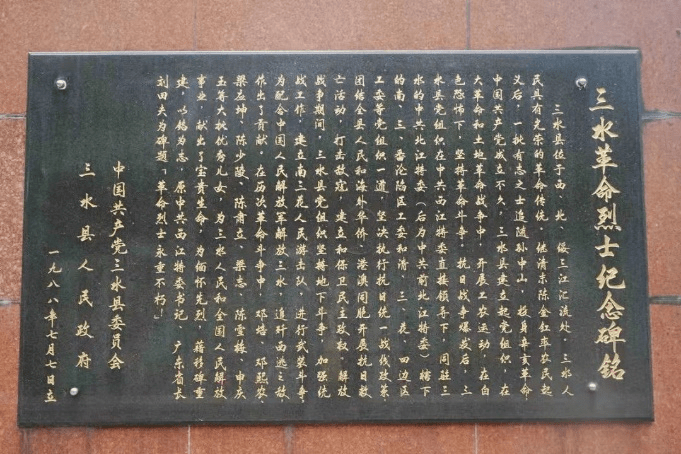 三水革命烈士纪念碑铭
三水县位于西、北、绥三江汇流处,三水人
民具有光荣的革命传统,继清末陈金釭率农民起
义后,一批有志之士追随孙中山,投身辛亥革命
中国共产党成立不久,三水县建立起党组织,在
大革命和土地革命战争中,开展工农运动,在白
色恐怖下,坚持革命斗争,抗日战争爆发后,三
水县党组织在中共西江特委直接领导下,同驻三
水的中共北江特委(后为中共前北江特委)辖下
的南、三、番沦陷区工委和清、三、花、四边区
工委等党组织一道,坚决执行抗日统一战线政策,
团结全县人民和海外华侨、港澳同胞开展抗日救
亡活动,打击敌寇,建立和保卫民主政权,解放
战争期间,三水县党组织坚持地下斗争,加强统
战工作,建立南三花人民游击队,进行武装斗争,
为配合中国人民解放军解放三水,追歼西逃之敌,
作出了贡献,在历次革命斗争中,邓培、邓熙农、
梁应坤、陈少陵、陈甫立、梁志、陈雪楼、申庆
玉等大批优秀儿女,为三水人民和全国人民解放
事业,献出了宝贵生命,为缅怀先烈,藉移碑重
建,立铭为志,原中共西江特委书记、广东省长
刘田夫为碑题“革命烈士永垂不朽”!
中国共产党三水县委员会
三水县人民政府
一九八八年七月七日立